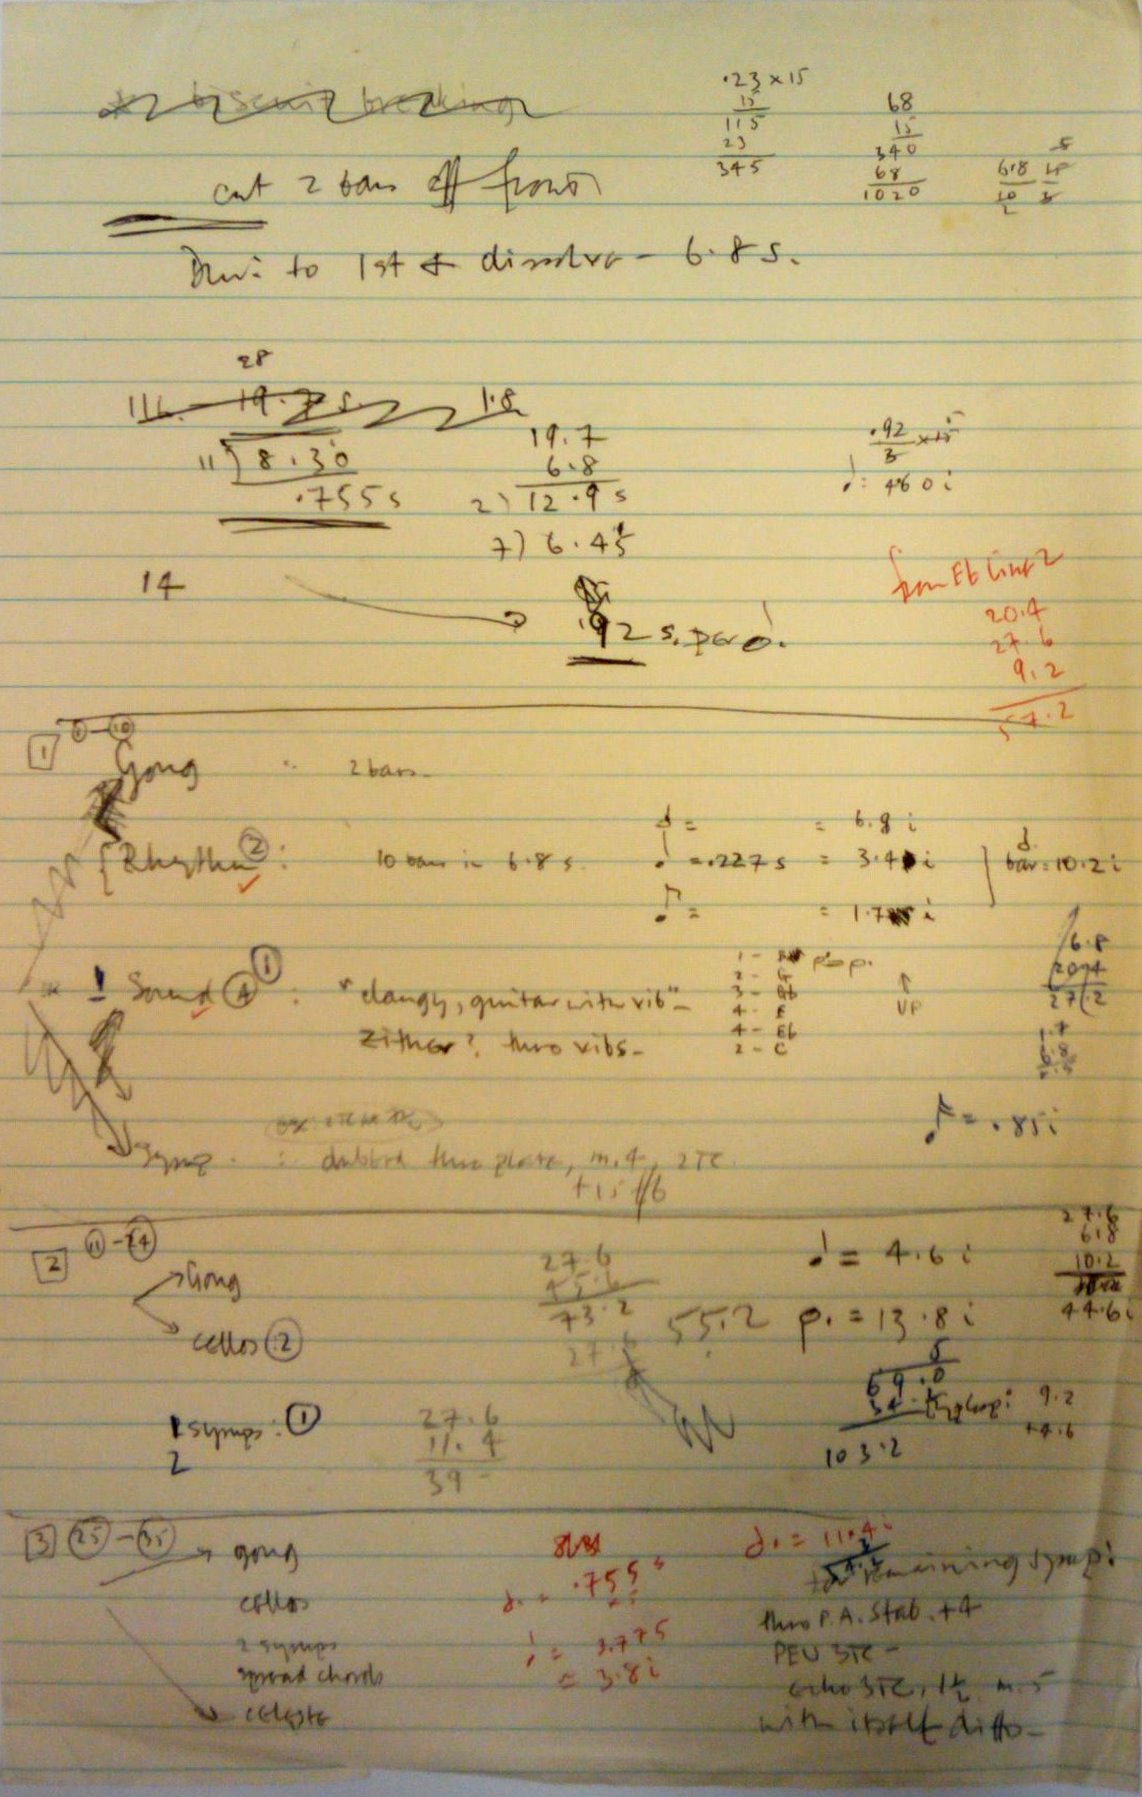 biscuit breaking
.23 x 15
15
115
23
345
68
15
340
68
1020
6.8
10
2
cut 2 bars off front
to 1st dissolve - 6.8 s.
28
19.7 s. 1.8
11) 8.30
.755 s
19.7
6.8
2) 12.9 s
7) 6.45
.92
3
x 15
♩: 4.60 i
14
.92 s. per
from Eb line 2
20.4
27.6
9.2
57.2
1 10
Gong : 2 bars.
= 6.8 i
Rhythm 2 : 10 bars in 6.8 s. ♩ = .227 s = 3.4 i bar = 10.2 i
♪ = = 1.7 i
! Sound A 1 : "clangy, guitar with vib" -
Zither? thro vibs -
1 -
2 - G
3 - Gb
4 - F
4 - Eb
2 - C
↑
UP
6.8
20.4
27.2
1.7
6.8
= .85 i
Symp. : dubbed thro plate, m.4, 2TC.
+15
2 11 - 24
Gong
cellos 2
27.6
45.6
73.2
27.6
♩ = 4.6 i
55.2 = 13.8 i
27.6
6.8
10.2
44.6 i
symps : 1
2
27.6
11.4
39
69.0
103.2
9.2
+4.6
3 25 - 35 gong
cellos
2 symps
spread chords
celeste
= .755 s
♩ = 3.775
= 3.8 i
= 11.4 i
for remaining symp:
thro P.A. Stab. +4
PEU 3TC -
echo 3TC, 1½ m.5
with itself ditto -